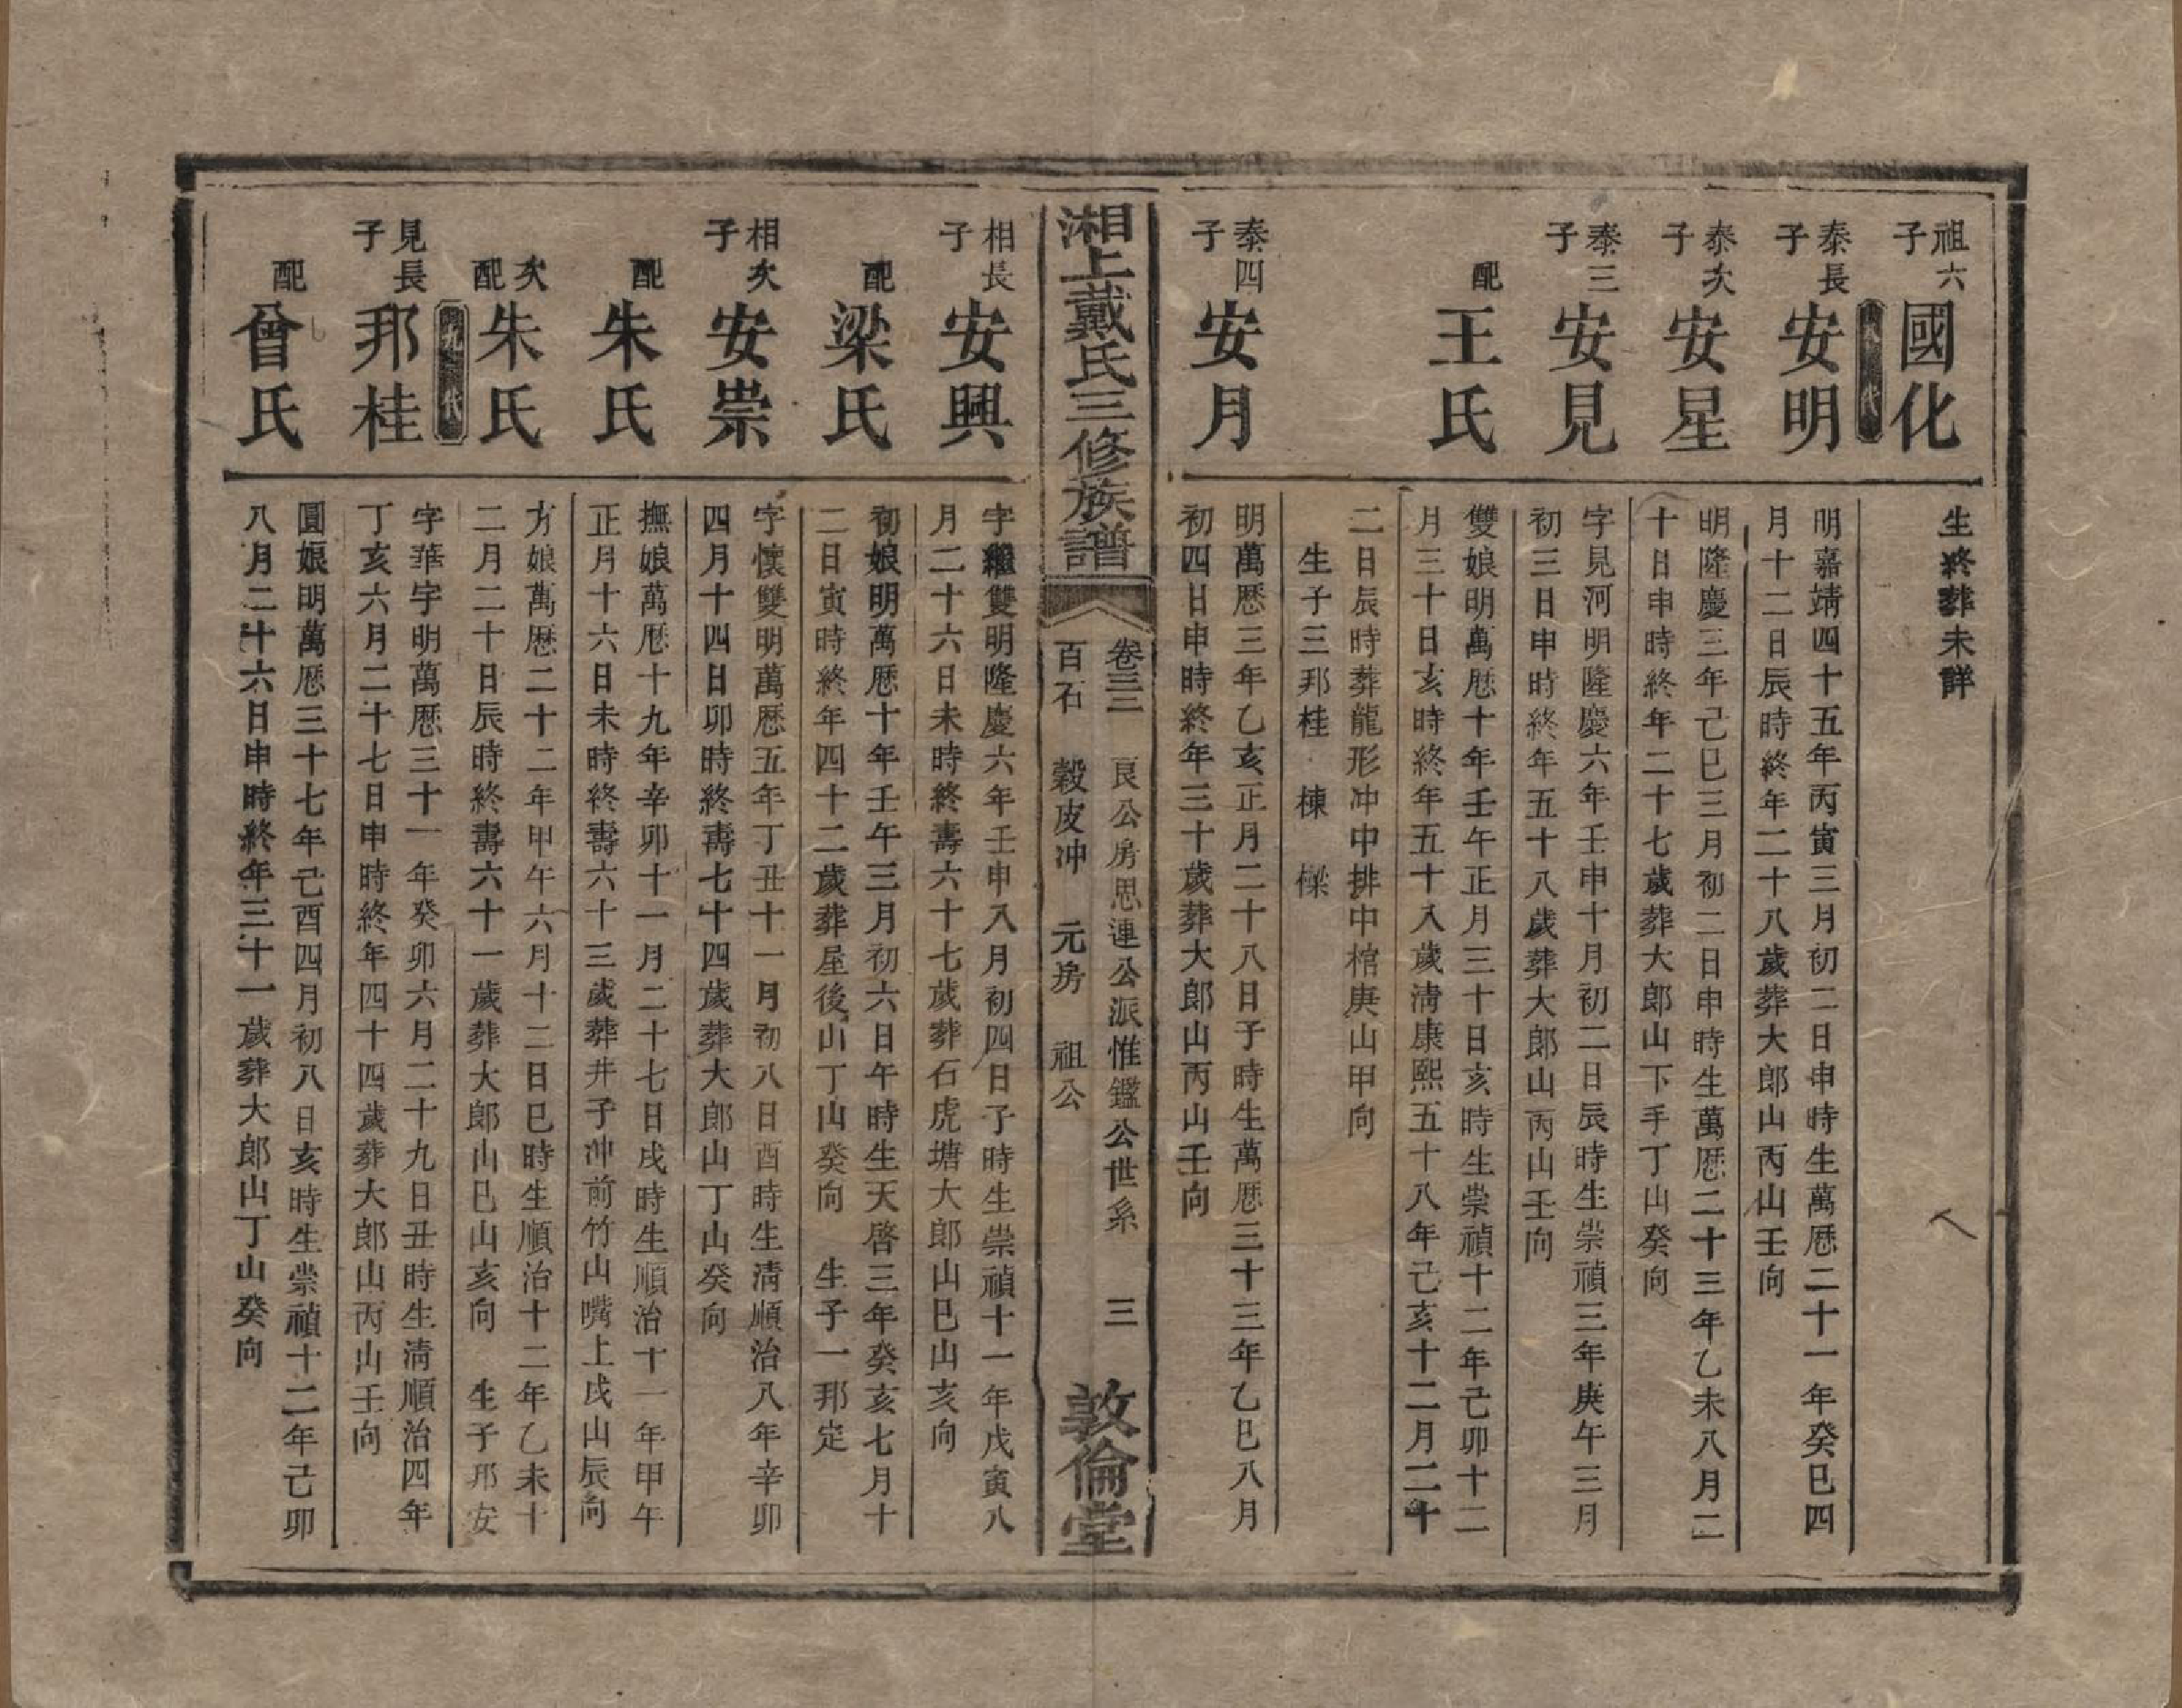 祖六子
國化
生終葬未詳
代
泰長子
安明
明嘉靖四十五年丙寅三月初二日申時生萬曆二十一年癸巳四
月十二日辰時終年二十八歲葬大郎山丙山壬向
泰次子
安星
明隆慶三年己巳三月初二日申時生萬曆二十三年乙未八月二
十日申時終年二十七歲葬大郎山下手丁山癸向
泰三子
安見
字見河明隆慶六年壬申十月初二日辰時生崇禎三年庚午三月
初三日申時終年五十八歲葬大郎山丙山壬向
配
王氏
雙娘明萬曆十年壬午正月三十日亥時生崇禎十二年己卯十二
月三十日亥時終年五十八歲淸康熙五十八年己亥十二月二十
二日辰時葬龍形冲中排中棺庚山甲向
生子三邦桂 棟 樑
泰四子
安月
明萬曆三年乙亥正月二十八日子時生萬曆三十三年乙巳八月
初四日申時終年三十歲葬大郎山丙山壬向
湘上戴氏三修族譜
卷三三 良公房思連公派惟鑑公世系 三
百石 穀皮冲 元房 祖公
敦倫堂
相長子
安興
字繼雙明隆慶六年壬申八月初四日子時生崇禎十一年戊寅八
月二十六日未時終壽六十七歲葬石虎塘大郎山巳山亥向
配
梁氏
初娘明萬曆十年壬午三月初六日午時生天啓三年癸亥七月十
二日寅時終年四十二歲葬屋後山丁山癸向 生子一邦定
相次子
安崇
字懷雙明萬曆五年丁丑十一月初八日酉時生淸順治八年辛卯
四月十四日卯時終壽七十四歲葬大郎山丁山癸向
配
朱氏
撫娘萬曆十九年辛卯十一月二十七日戌時生順治十一年甲午
正月十六日未時終壽六十三歲葬井子冲前竹山嘴上戌山辰向
次配
朱氏
方娘萬曆二十二年甲午六月十二日巳時生順治十二年乙未十
二月二十日辰時終壽六十一歲葬大郎山巳山亥向 生子邦安
九代
見長子
邦桂
字華宇明萬曆三十一年癸卯六月二十九日丑時生淸順治四年
丁亥六月二十七日申時終年四十四歲葬大郎山丙山壬向
配
曾氏
圓娘明萬曆三十七年己酉四月初八日亥時生崇禎十二年己卯
八月二十六日申時終年三十一歲葬大郎山丁山癸向